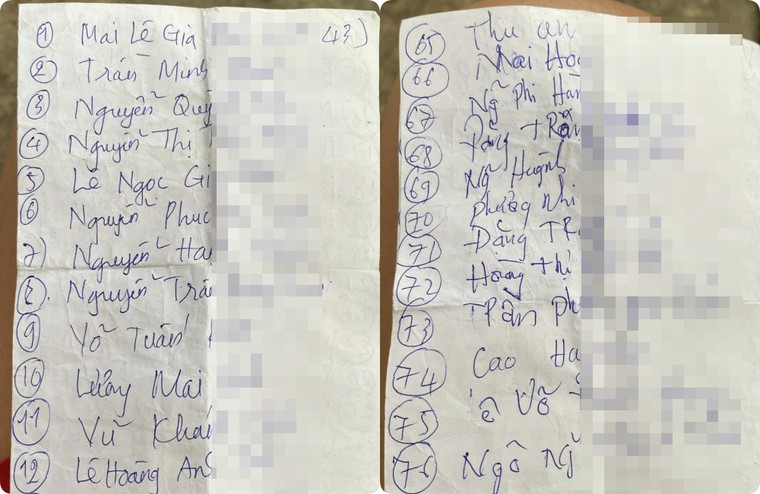 1 Mai Lê Gia 43)
2 Trần Minh
3 Nguyễn Quý
4 Nguyễn Thị
5 Lê Ngọc Gi
6 Nguyễn Phúc
7) Nguyễn Ha
8. Nguyễn Trâ
9 Võ Tuấn
10 Lương Mai
11 Vũ Khá
12 Lê Hoàng An
65 Thu an
66 Mai Ho
67 Ng Phi Hà
68 Đặng Trần
69 Ng Huỳnh
70 Phương Nhi
71 Đặng TR
72 Hoàng Thị
73 Trần Ph
74 Cao Ha
75 Võ
76 Ngô Ng